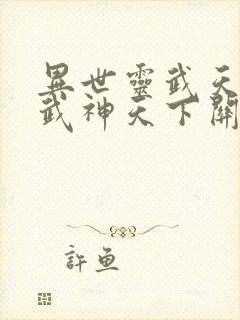 異世靈武天
武神天下關
許魚